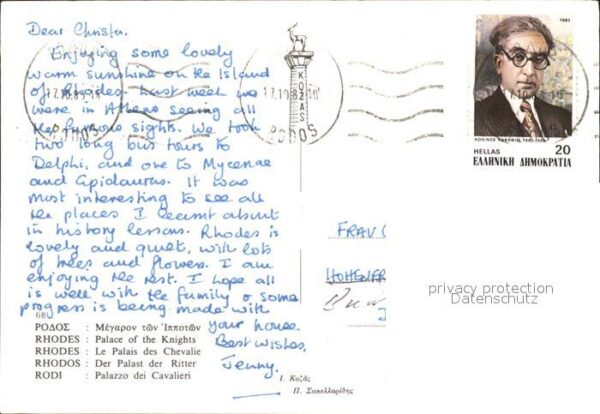 Dear Christa,
Enjoying some lovely
warm sunshine on the Island
of Rhodes. Last week we
were in Athens seeing all
the famous sights. We took
two long bus tours to
Delphi, and one to Mycenae
and Epidaurus. It was
most interesting to see all
the places I learnt about
in history lessons. Rhodes is
lovely and quiet, with lots
of trees and flowers. I am
enjoying the rest. I hope all
is well with the family & some
progress is being made with
your house.
Best wishes,
Jenny.
68
ΡΟΔΟΣ : Μέγαρον τῶν Ἱπποτῶν
RHODES : Palace of the Knights
RHODES : Le Palais des Chevalie
RHODOS : Der Palast der Ritter
RODI : Palazzo dei Cavalieri
Ι. Κοζᾶς
Π. Σακελλαρίδης
17.10.83
RODOS
1983
HELLAS 20
ΕΛΛΗΝΙΚΗ ΔΗΜΟΚΡΑΤΙΑ
FRAU
privacy protection
Datenschutz